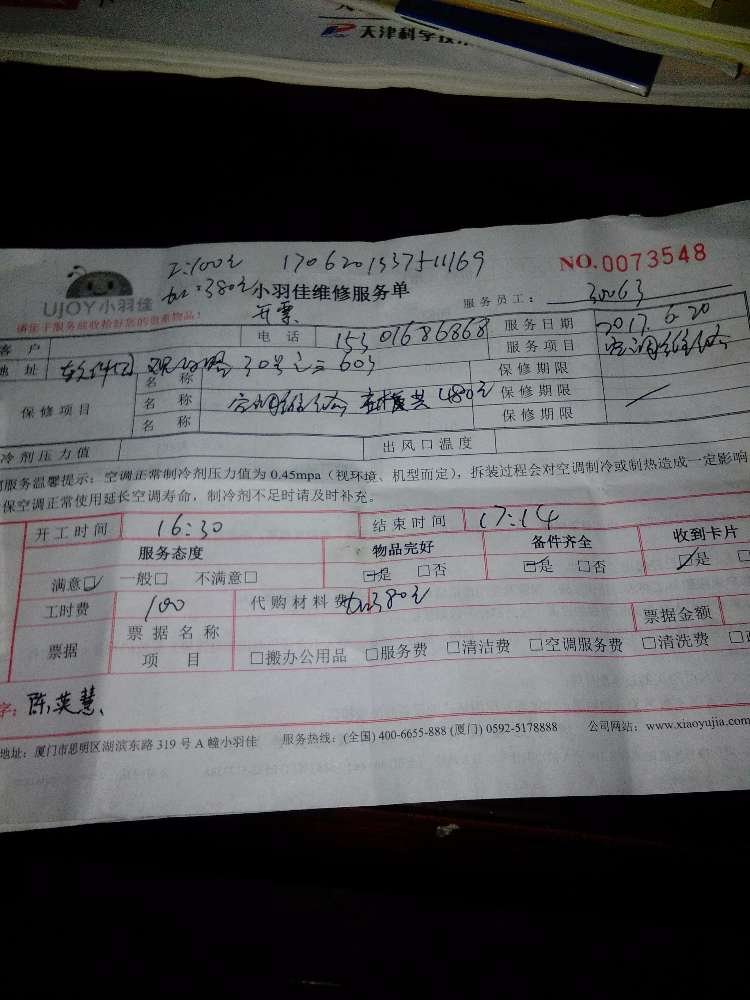 天津科学技术
工:100元 1706201537511169 NO.0073548
380元 小羽佳维修服务单 服务员工: 30063
UJOY小羽佳 开票
请您于服务前收检好您的贵重物品!
客户 电话 15301686868 服务日期 2017.6.20
地址 软件园观日路30号之三603 服务项目 空调维修
保修项目 名称 保修期限
名称 空调维修 共480元 保修期限
名称 保修期限
冷剂压力值 出风口温度
服务温馨提示:空调正常制冷剂压力值为 0.45mpa(视环境、机型而定),拆装过程会对空调制冷或制热造成一定影响
保空调正常使用延长空调寿命,制冷剂不足时请及时补充。
开工时间 16:30 结束时间 17:14
服务态度 物品完好 备件齐全 收到卡片
满意☑ 一般□ 不满意□ ☑是 □否 ☑是 □否 ☑是 □
工时费 100 代购材料费 380元
票据 票据名称 票据金额
项目 □搬办公用品 □服务费 □清洁费 □空调服务费 □清洗费
字: 陈英慧
地址:厦门市思明区湖滨东路 319 号 A 幢小羽佳 服务热线:(全国) 400-6655-888 (厦门) 0592-5178888 公司网站:www.xiaoyujia.com